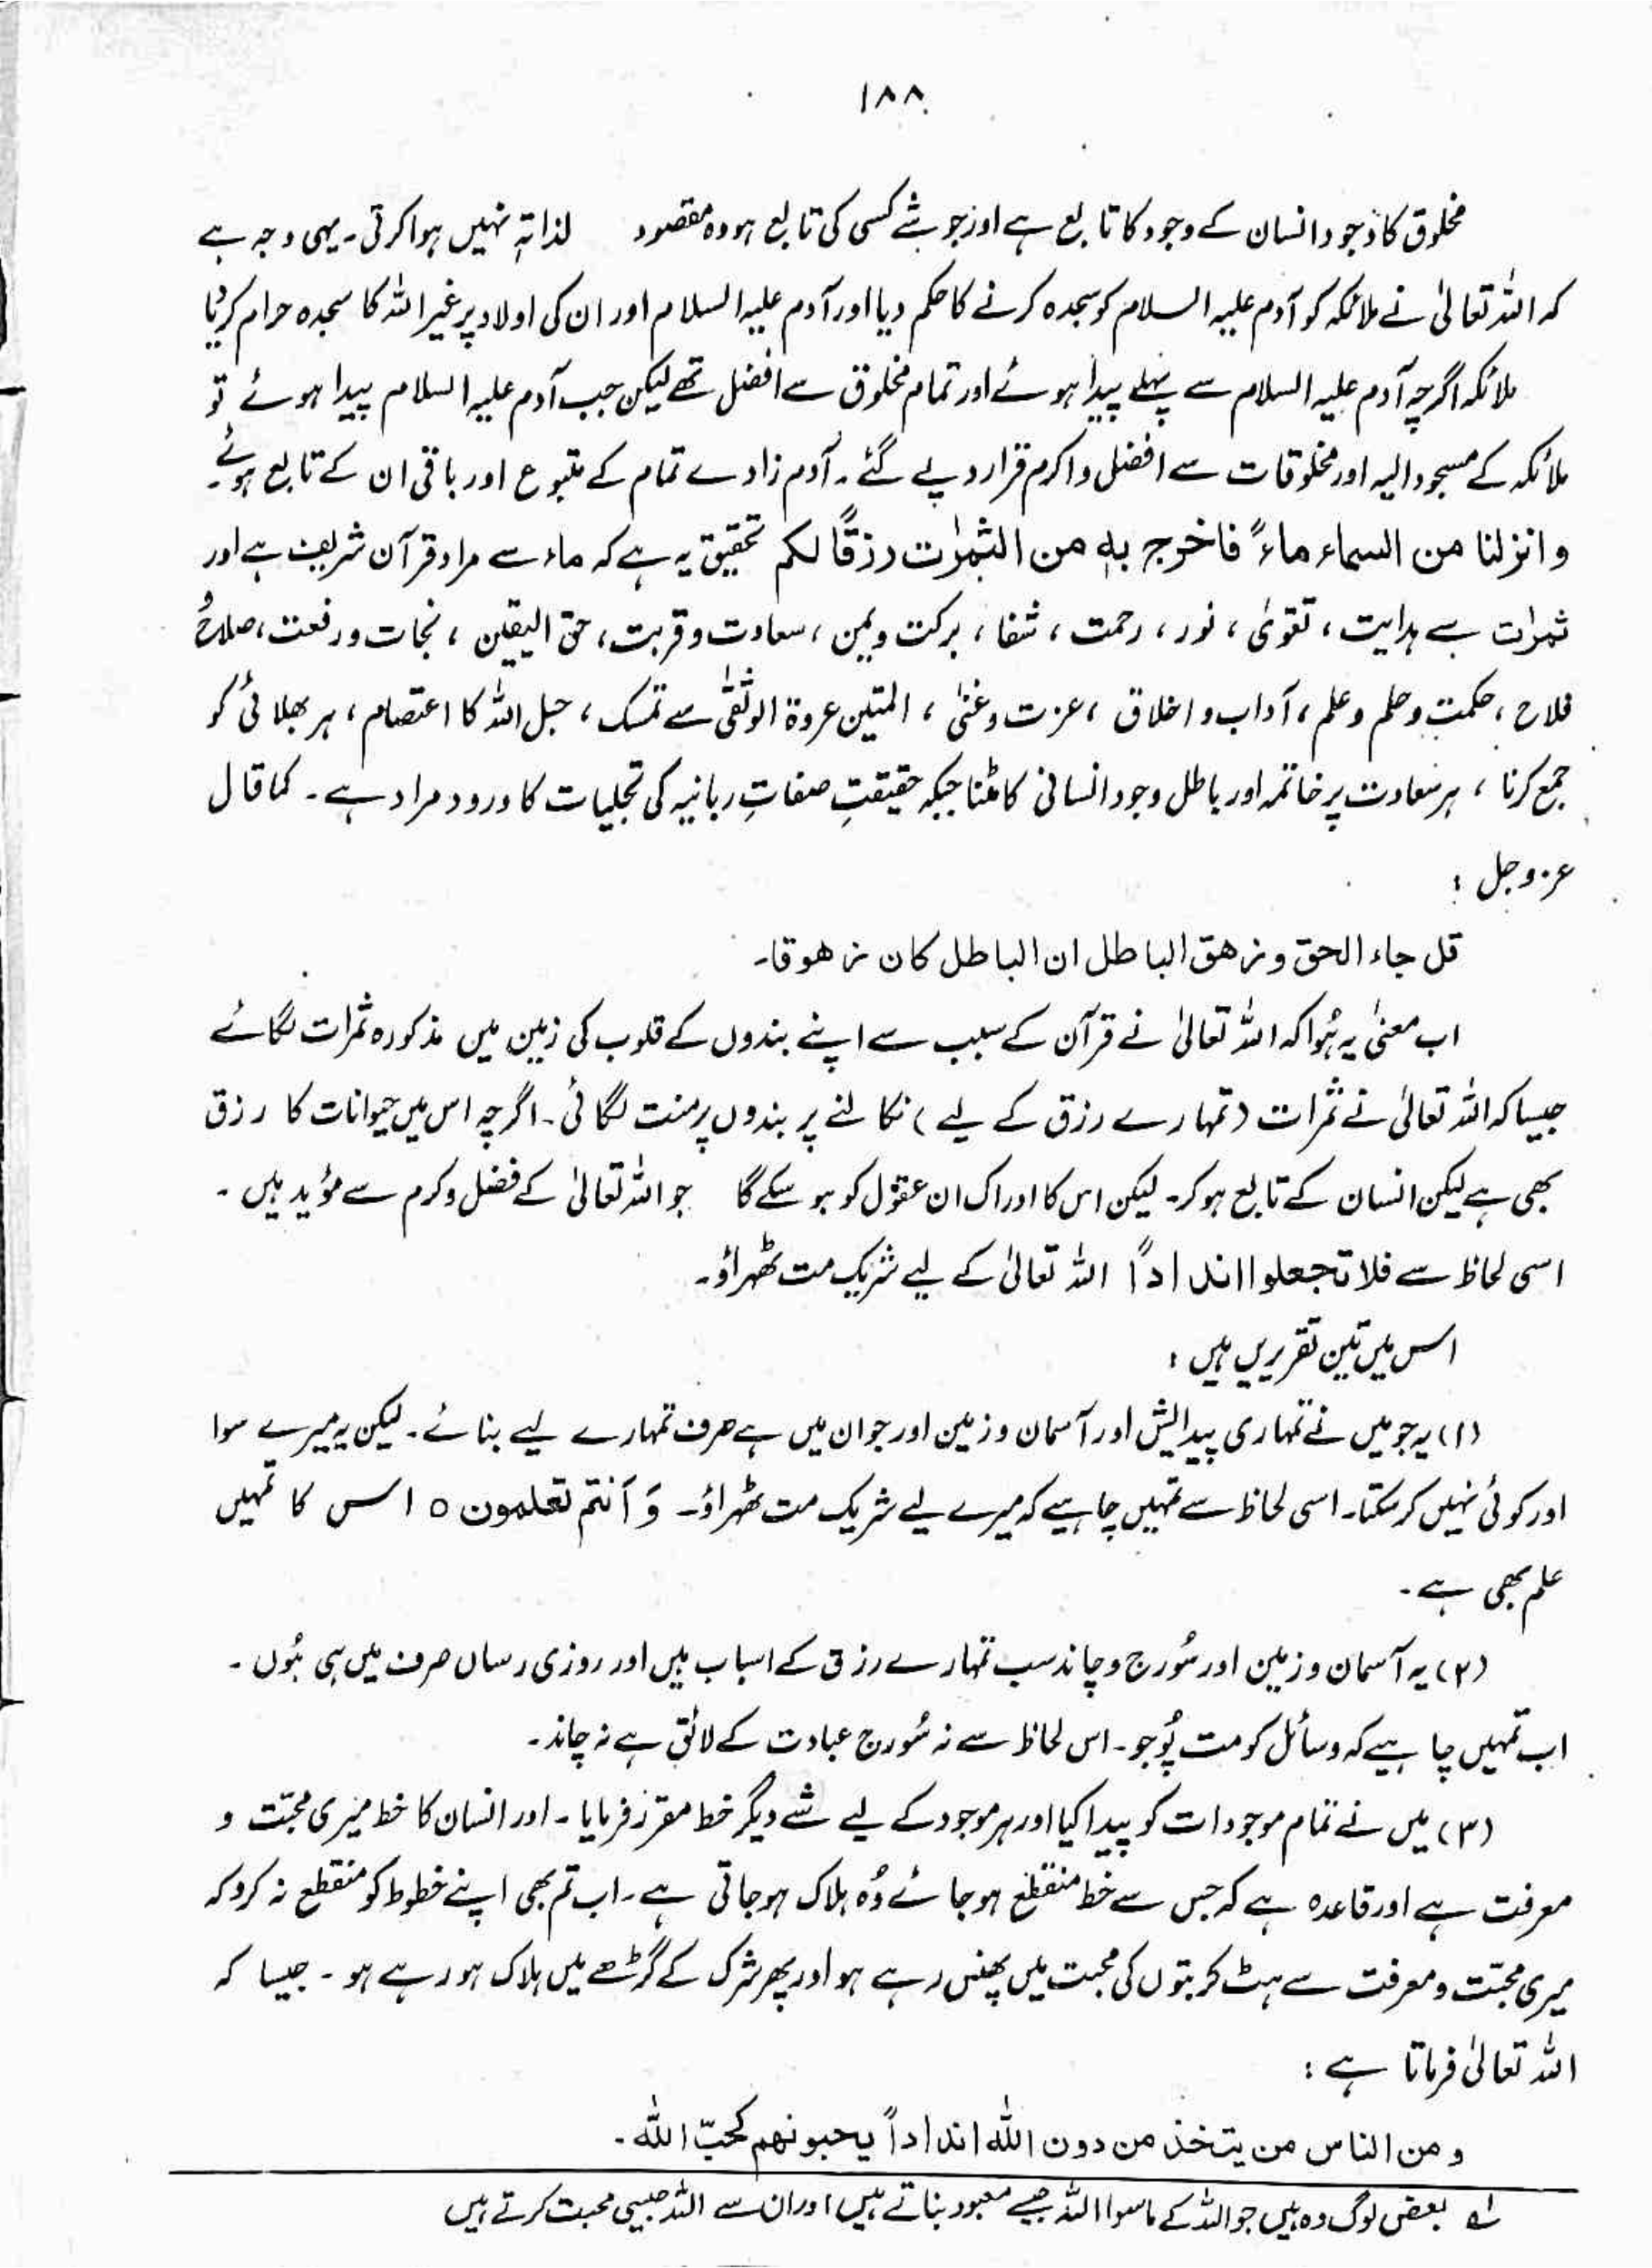 ۱۸۸
مخلوق کا وجود انسان کے وجود کا تابع ہے اور جو شے کسی کی تابع ہو وہ مقصود لذاتہٖ نہیں ہوا کرتی۔ یہی وجہ ہے
کہ اللہ تعالیٰ نے ملائکہ کو آدم علیہ السلام کو سجدہ کرنے کا حکم دیا اور آدم علیہ السلام اور ان کی اولاد پر غیر اللہ کا سجدہ حرام کر دیا
ملائکہ اگرچہ آدم علیہ السلام سے پہلے پیدا ہوئے اور تمام مخلوق سے افضل تھے لیکن جب آدم علیہ السلام پیدا ہوئے تو
ملائکہ کے مسجود الیہ اور مخلوقات سے افضل و اکرم قرار دیے گئے۔ آدم زادے تمام کے متبوع اور باقی ان کے تابع ہوئے۔
و انزلنا من السماء ماءً فاخرج بہٖ من الثمرٰت رزقًا لکم تحقیق یہ ہے کہ ماء سے مراد قرآن شریف ہے اور
ثمرات سے ہدایت، تقویٰ، نور، رحمت، شفا، برکت و یمن، سعادت و قربت، حق الیقین، نجات و رفعت، صلاح و
فلاح، حکمت و حلم و علم، آداب و اخلاق، عزت و غنیٰ، المتین عروۃ الوثقیٰ سے تمسک، حبل اللہ کا اعتصام، ہر بھلائی کو
جمع کرنا، ہر سعادت پر خاتمہ اور باطل وجود انسانی کا مٹنا جبکہ حقیقتِ صفاتِ ربانیہ کی تجلیات کا ورود مراد ہے۔ کما قال
عز و جل :
قل جاء الحق و زھق الباطل ان الباطل کان زھوقا۔
اب معنیٰ یہ ہُوا کہ اللہ تعالیٰ نے قرآن کے سبب سے اپنے بندوں کے قلوب کی زمین میں مذکورہ ثمرات لگائے
جیسا کہ اللہ تعالیٰ نے ثمرات (تمہارے رزق کے لیے) نکالنے پر بندوں پر منت لگائی۔ اگرچہ اس میں حیوانات کا رزق
بھی ہے لیکن انسان کے تابع ہو کر۔ لیکن اس کا ادراک ان عقول کو ہو سکے گا جو اللہ تعالیٰ کے فضل و کرم سے مؤید ہیں۔
اسی لحاظ سے فلا تجعلوا اندادًا اللہ تعالیٰ کے لیے شریک مت ٹھہراؤ۔
اس میں تین تقریریں ہیں :
(۱) یہ جو میں نے تمہاری پیدائش اور آسمان و زمین اور جو ان میں ہے صرف تمہارے لیے بنائے۔ لیکن یہ میرے سوا
اور کوئی نہیں کر سکتا۔ اسی لحاظ سے تمہیں چاہیے کہ میرے لیے شریک مت ٹھہراؤ۔ وَ اَنتم تعلمون o اس کا تمہیں
علم بھی ہے۔
(۲) یہ آسمان و زمین اور سُورج و چاند سب تمہارے رزق کے اسباب ہیں اور روزی رساں صرف میں ہی ہُوں۔
اب تمہیں چاہیے کہ وسائل کو مت پُوجو۔ اس لحاظ سے نہ سُورج عبادت کے لائق ہے نہ چاند۔
(۳) میں نے تمام موجودات کو پیدا کیا اور ہر موجود کے لیے شے دیگر خط مقرر فرمایا۔ اور انسان کا خط میری محبّت و
معرفت ہے اور قاعدہ ہے کہ جس سے خط منقطع ہو جائے وُہ ہلاک ہو جاتی ہے۔ اب تم بھی اپنے خطوط کو منقطع نہ کرو کہ
میری محبّت و معرفت سے ہٹ کر بتوں کی محبت میں پھنس رہے ہو اور پھر شرک کے گڑھے میں ہلاک ہو رہے ہو۔ جیسا کہ
اللہ تعالیٰ فرماتا ہے :
و من الناس من یتخذ من دون اللہ اندادًا یحبونھم کحبّ اللہ۔
لہ بعض لوگ وہ ہیں جو اللہ کے ماسوا اللہ جیسے معبود بناتے ہیں اور ان سے اللہ جیسی محبت کرتے ہیں